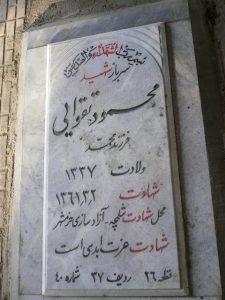 سرباز شهید
محمود تقوایی
فرزند محمد
ولادت ۱۳۳۷
شهادت ۱۳۶۱/۳/۲
محل شهادت شلمچه - آزادسازی خرمشهر
شهادت عزت ابدی است
قطعه ۲۶ ردیف ۳۷ شماره ۴۰